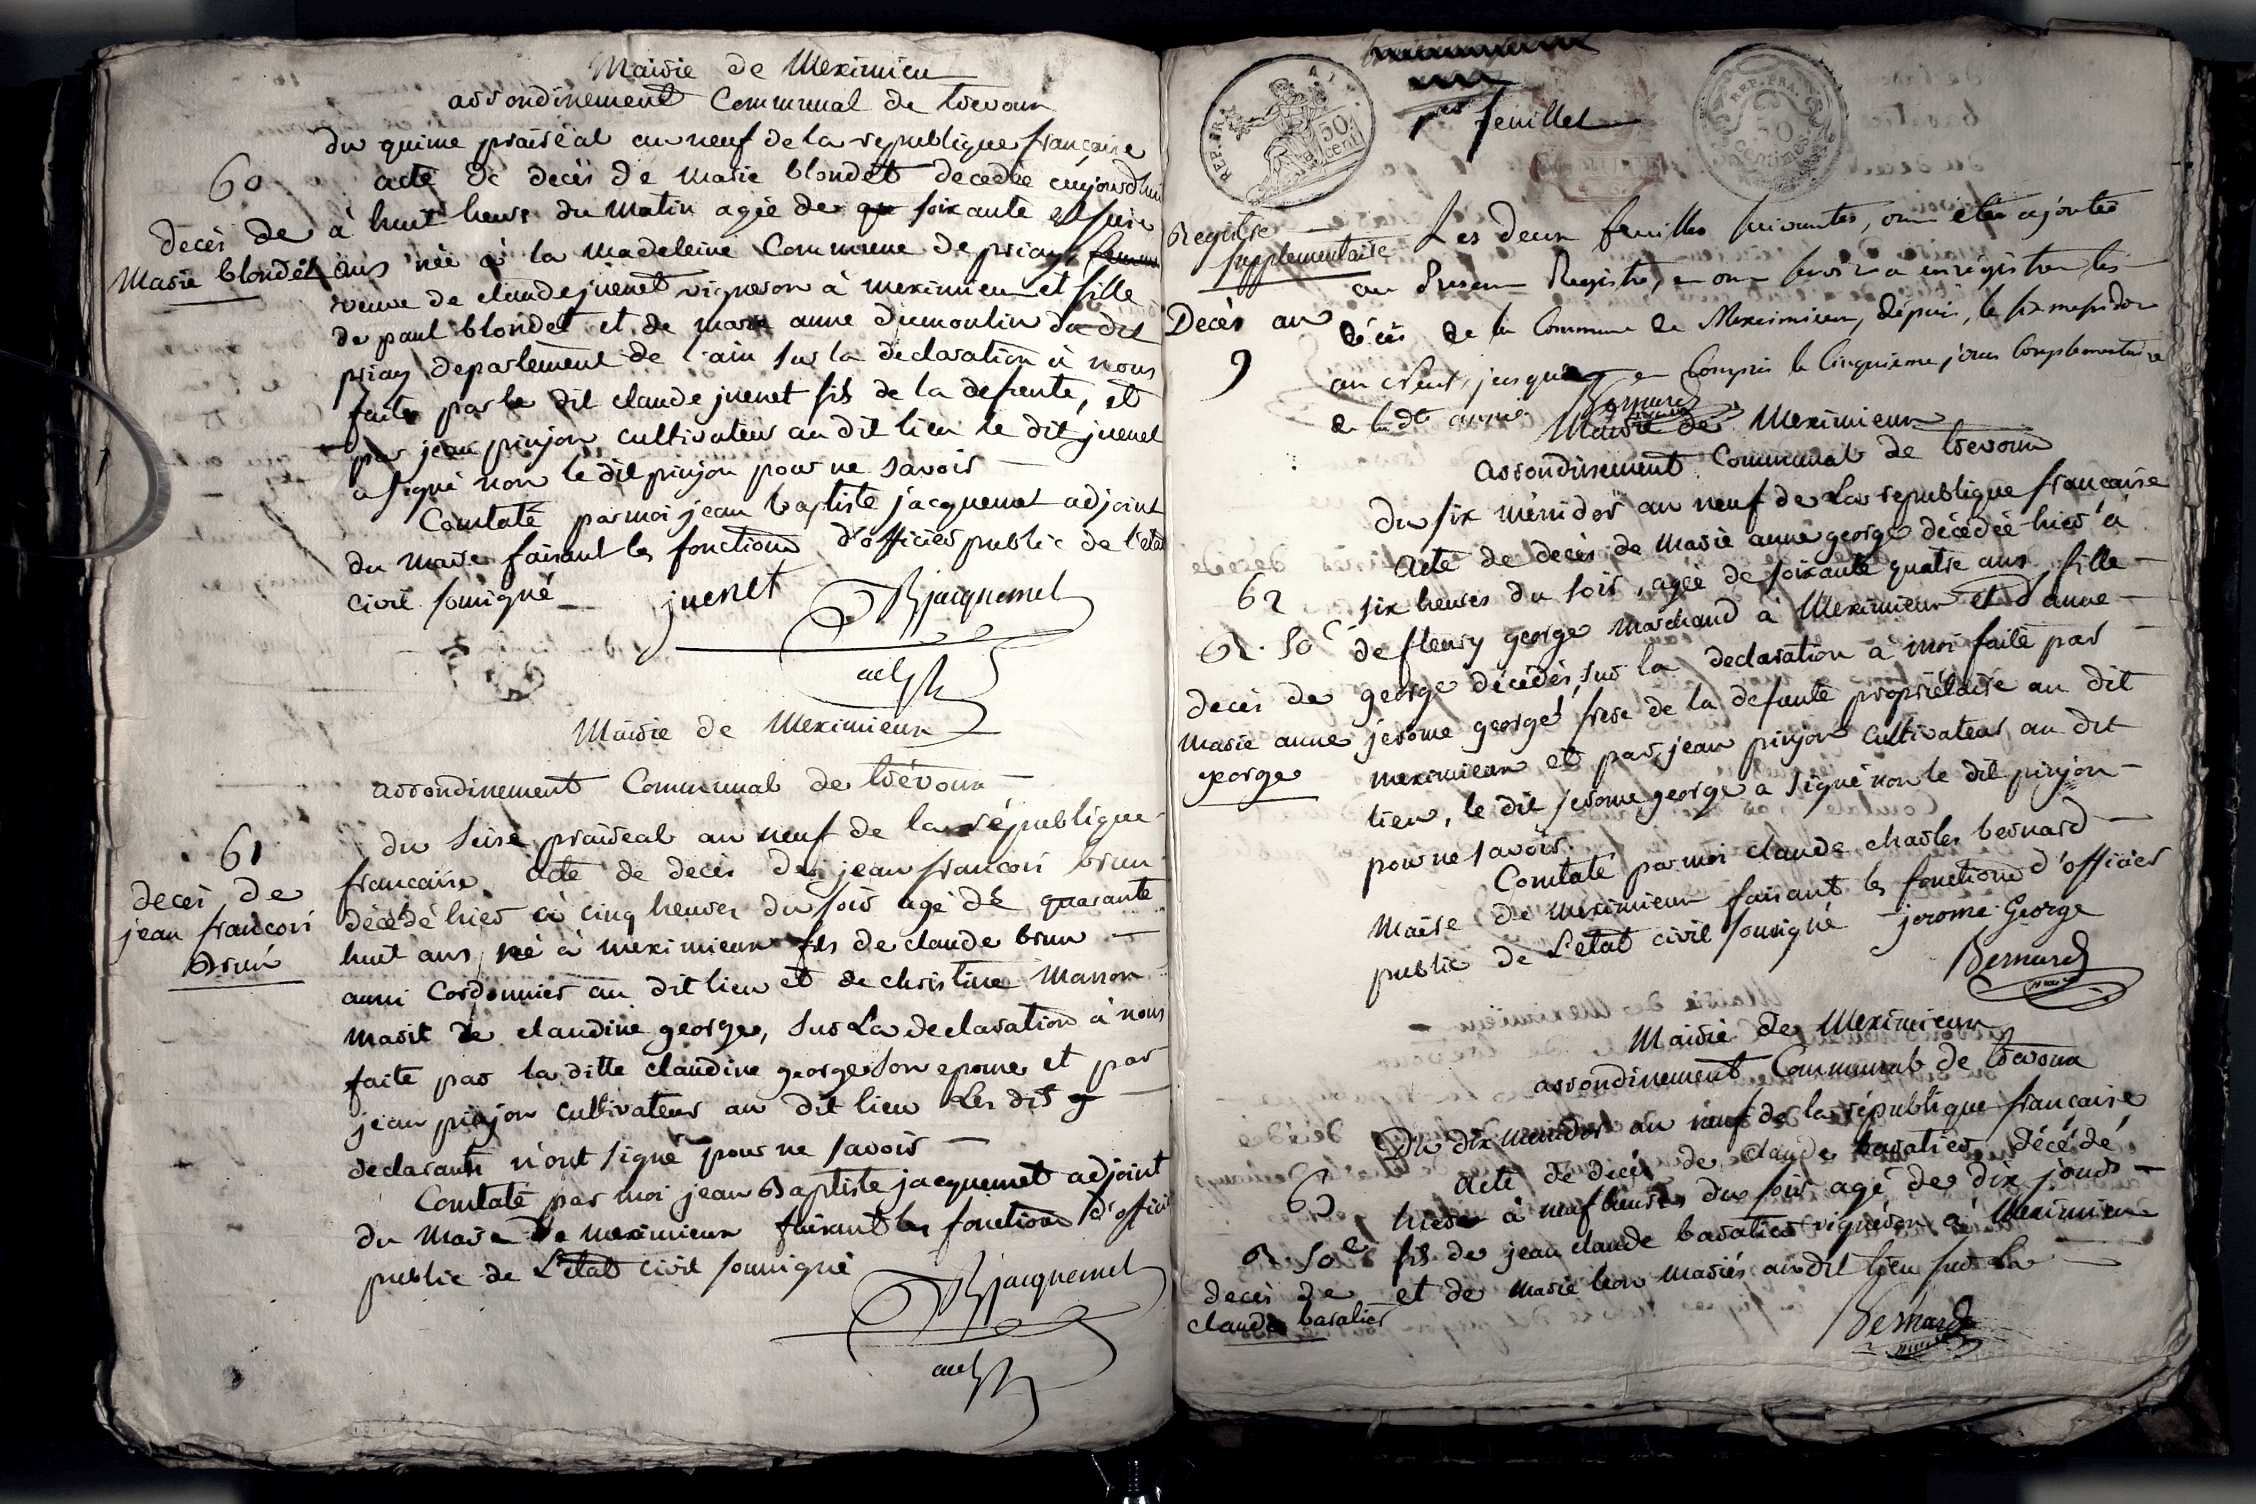 Mairie de Meximieu
arrondinement Communal de trevoux
du quinze prairéal an neuf de la republique francaise
60
acte de decès de marie blondet decedée aujourdhui
à huit heure du matin agée de soixante et seize
decès de
Marie blondet
ans née à la madeleine Commune de priay
veuve de claude juenet vigneron à meximieu et fille
de paul blondet et de marie anne dumoulin du dit
priay departement de l'ain sur la declaration à nous
faite par le dit claude juenet fils de la defunte, et
par jean pinjon cultivateur au dit lieu le dit juenet
a signé non le dit pinjon pour ne savoir
Constaté par moi jean baptiste jacquemet adjoint
du maire faisant les fonctions d'officier public de l'etat
civil soussigné
juenet
JBjacquemet
adj
Mairie de Meximieux
arrondinement Communal de trévoux
61
du seize prairéal an neuf de la république
decès de
jean francois
brun
francaise acte de decès de jean francois brun
décédé hier à cinq heures du soir agé de quarante
huit ans, né à meximieux fils de claude brun
aussi Cordonnier au dit lieu et de christine Manon
marit de claudine george, sur La declaration à nous
faite par la ditte claudine george son epouse et par
jean pinjon cultivateur au dit lieu Les dits
declarants n'ont signé pour ne savoir
Constaté par moi jean Baptiste jacquemet adjoint
du Maire de meximieux faisant les fonctions d'officier
public de L'etat civil soussigné
JBjacquemet
adj
REP. FRA.
50 cent
REP. FRA.
50 Centimes
1er feuillet
Registre
supplementaire
Les deux feuilles suivantes, ont été ajoutés
au present Registre, et ont servir a enregistrer les
Decès an
9
décès de la Commune de Meximieux, dépuis, le six messidor
an neuf, jusques et Compris le Cinquieme jour Complementaire
de ladte année
Bernard
maire
Mairie de Meximieux
arrondissement Communal de trevoux
du six méssidor an neuf de La republique francaise
acte de decès de marie anne george décédée hier à
62
six heures du soir, agée de soixante quatre ans, fille
R. 50c
de fleury george marchand à Meximieux et d'anne
decès de
marie anne
george
george décédés, sur la declaration à moi faite par
jérome george, frere de la defunte propriétaire au dit
meximieux et par jean pinjon cultivateur au dit
lieu, le dit jerome george a signé non le dit pinjon
pour ne savoir.
Constaté par moi claude charles bernard
Maire de meximieux faisant les fonctions d'officier
public de L'etat civil soussigné
jerome George
Bernard
maire
Mairie de Meximieux
arrondinement Communal de trevoux
Du dix messidor an neuf de la république francaise
63
acte de decès de claude baratier décédé
hier à neuf heures du soir agé de dix jours
R. 50c
fils de jean claude baratier vigneron à Meximieux
decès de
claude baratier
et de marie bon mariés audit lieu sur la
Bernard
maire